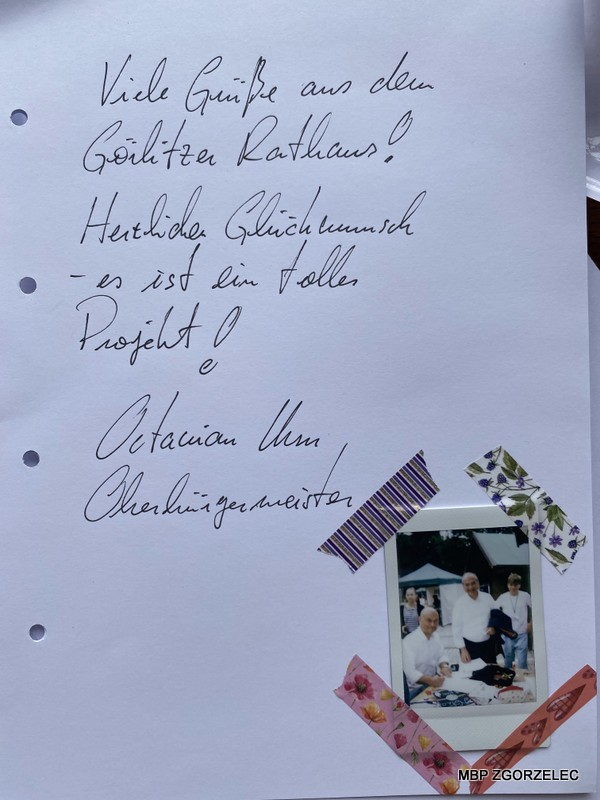 Viele Grüße aus dem
Görlitzer Rathaus!
Herzlichen Glückwunsch
- es ist ein tolles
Projekt!
Octavian Ursu
Oberbürgermeister
MBP ZGORZELEC